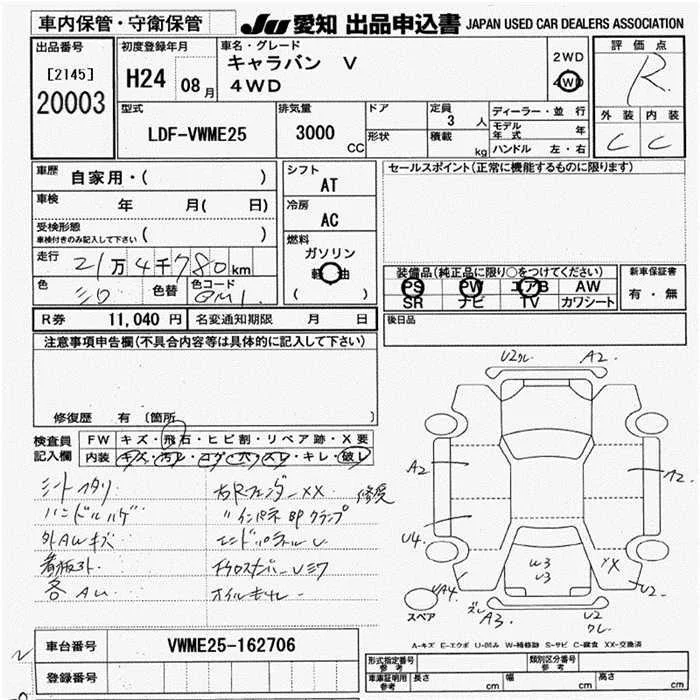 車内保管・守衛保管
JU 愛知 出品申込書 JAPAN USED CAR DEALERS ASSOCIATION
出品番号
[2145]
20003
初度登録年月
H24 08月
車名・グレード
キャラバン V
4WD
2WD
4WD
評価点
R
外装 内装
C C
型式
LDF-VWME25
排気量
3000
CC
ドア
形状
定員
3 人
積載
kg
ディーラー・並行
モデル年式 年
ハンドル 左・右
車歴 自家用・( )
車検 年 月( 日)
受検形態
車検付きのみ記入して下さい ( )
走行 21万4千780km
色 シロ 色替 色コード QM1
シフト
AT
冷房
AC
燃料
ガソリン
軽油
( )
セールスポイント(正常に機能するものに限ります)
装備品(純正品に限り○をつけてください)
PS PW エアB AW
SR ナビ TV カワシート
新車保証書
有・無
R券 11,040円 名変通知期限 月 日
後日品
注意事項申告欄(不具合内容等は具体的に記入して下さい)
修復歴 有 〔箇所
検査員記入欄
FW キズ・飛石・ヒビ割・リペア跡・X要
内装 キズ・汚レ・コゲ・穴・スレ・キレ・破レ
シートヘタリ
ハンドルハゲ
外AWキズ
看板跡
各AU
右Rフェンダー XX 修復
〃インパネ BPクランプ
エンドパネル U
オイルモレ
U2クレ A2
A2
A2
U4
W3
U3
XX
UA4
U2
スペア
ズレ A3
U2
クレ
A-キズ E-エクボ U-凹み W-補修跡 S-サビ C-腐食 XX-交換済
車台番号 VWME25-162706
登録番号
形式指定番号
参考
類別区分番号
参考
車庫証明用
参考
長さ cm 幅 cm 高さ cm